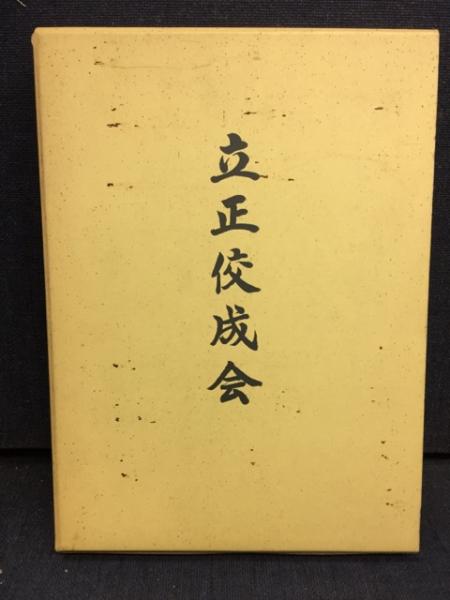 立正佼成会